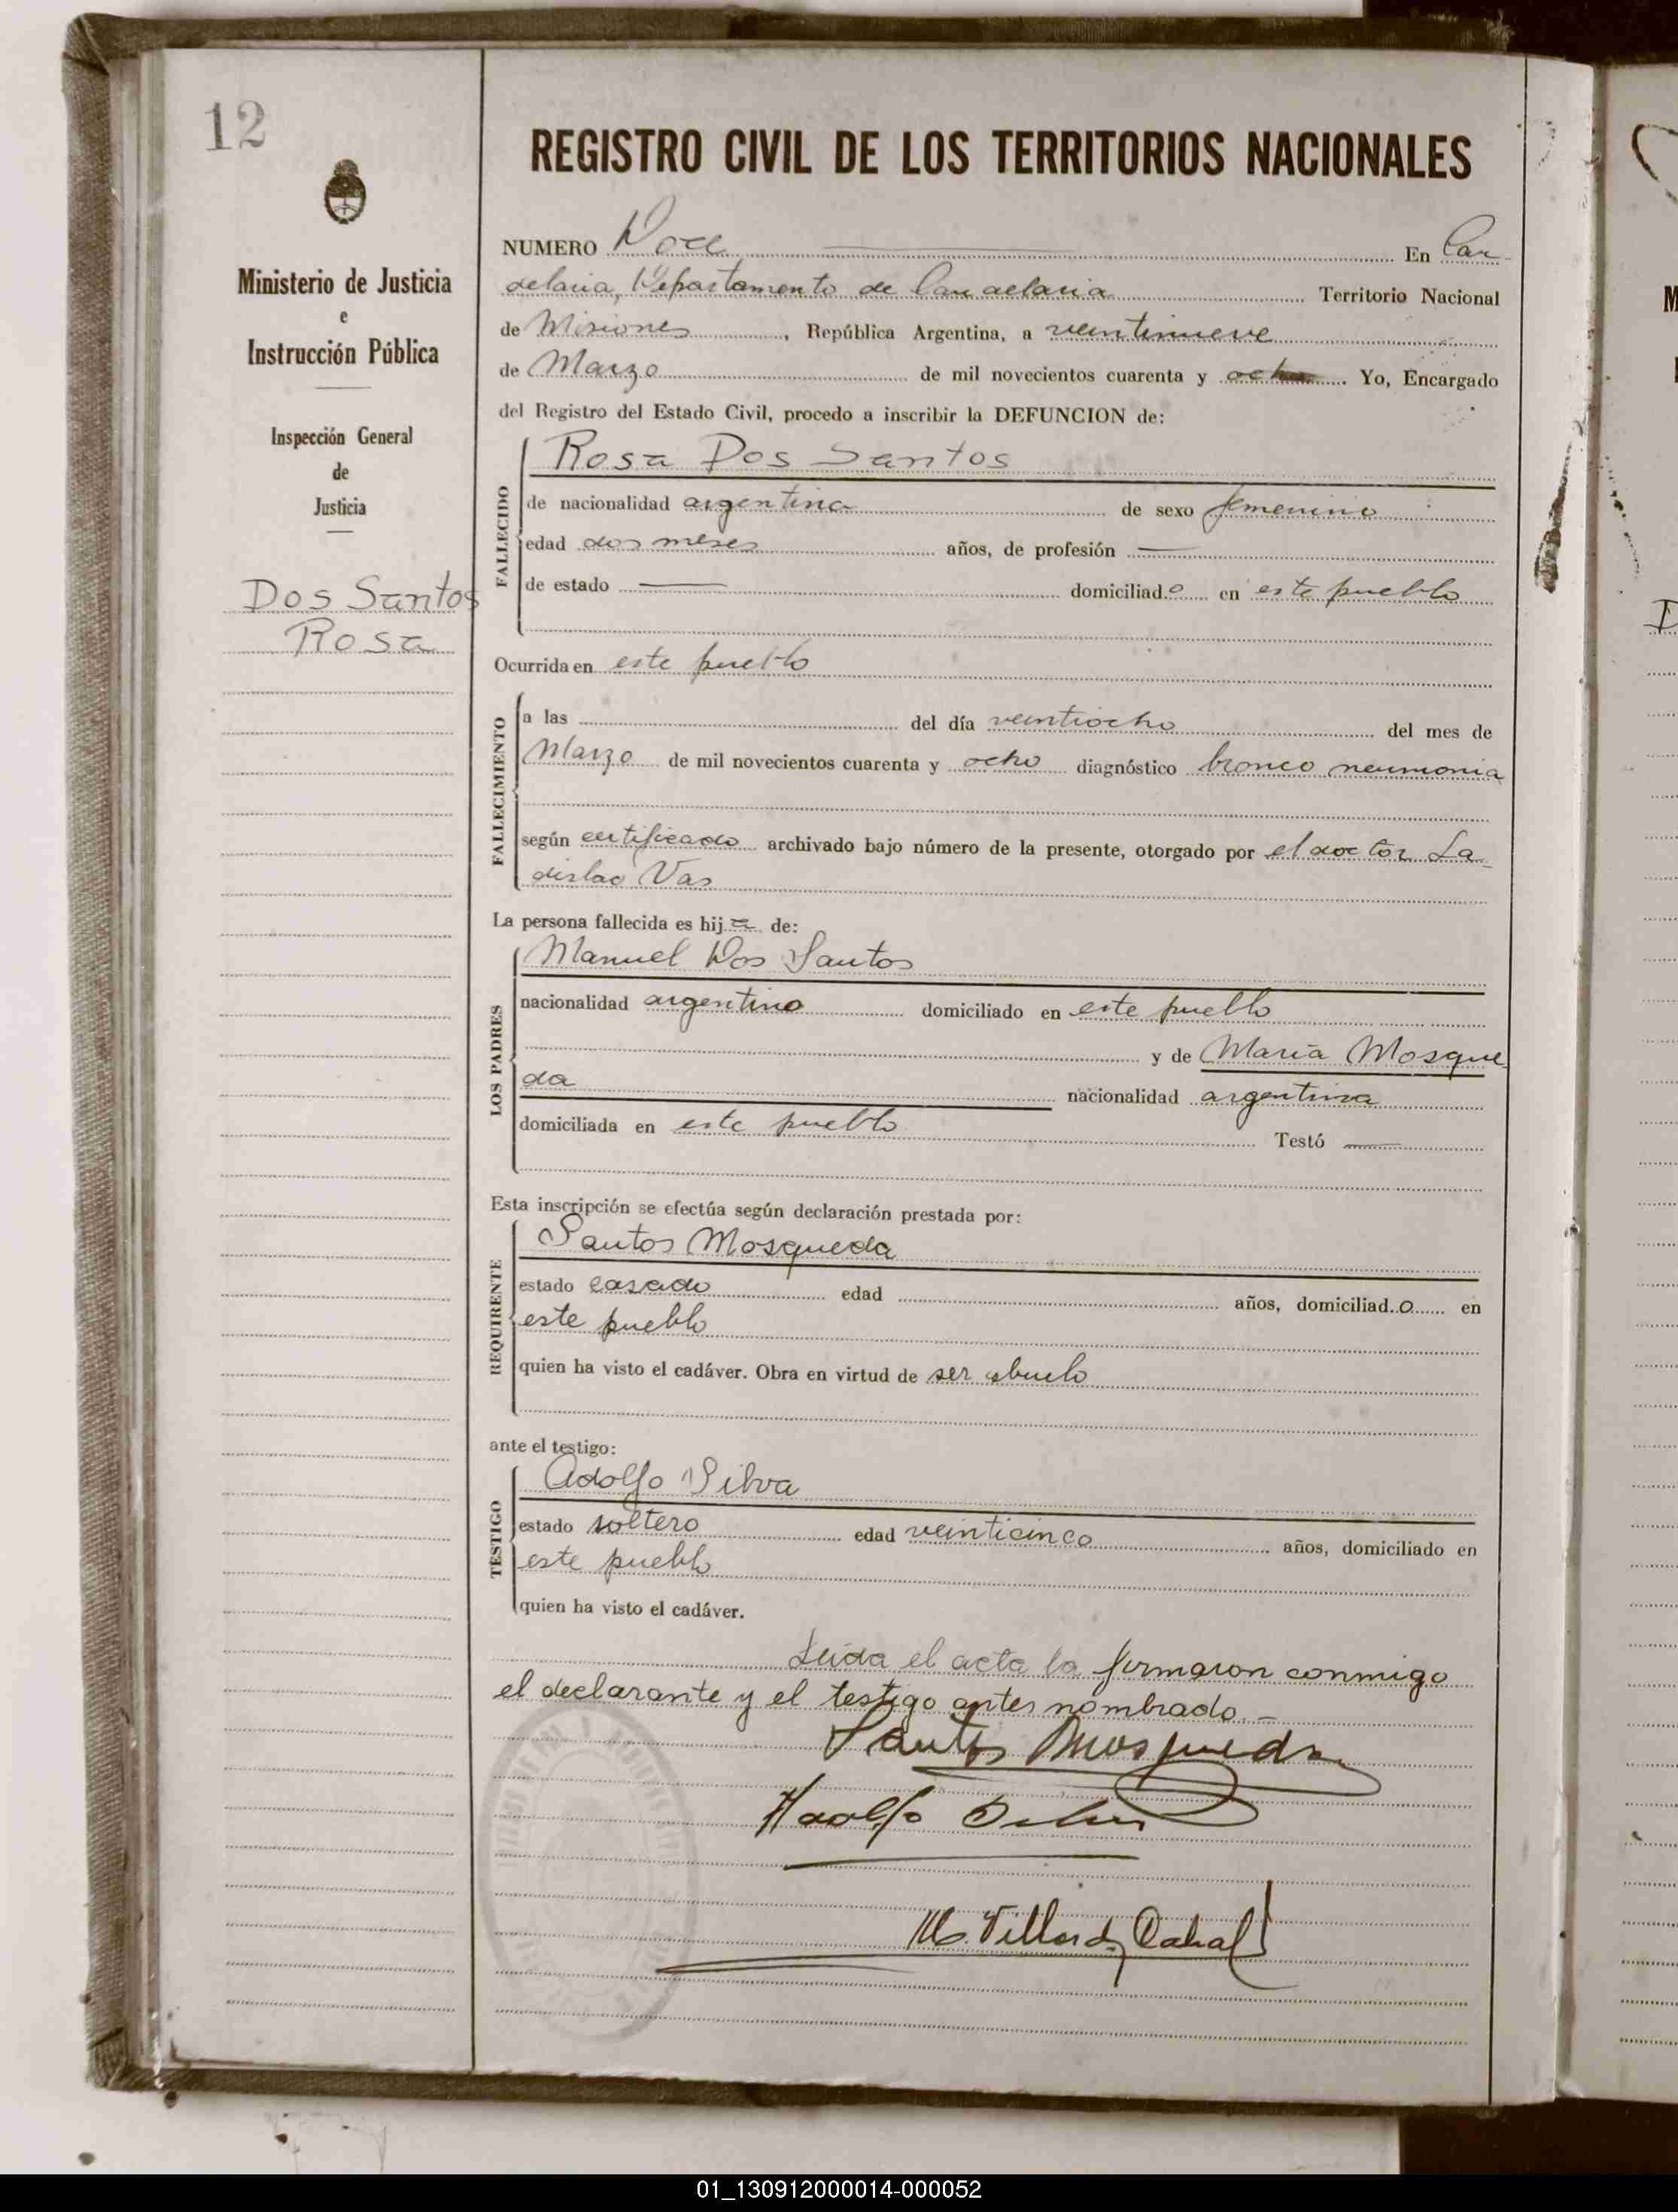 12
Ministerio de Justicia
e
Instrucción Pública
Inspección General
de
Justicia
Dos Santos
Rosa
REGISTRO CIVIL DE LOS TERRITORIOS NACIONALES
NUMERO Doce En Can-
delaria, Departamento de Candelaria Territorio Nacional
de Misiones, República Argentina, a veintinueve
de Marzo de mil novecientos cuarenta y ocho. Yo, Encargado
del Registro del Estado Civil, procedo a inscribir la DEFUNCION de:
FALLECIDO
Rosa Dos Santos
de nacionalidad argentina de sexo femenino
edad dos meses años, de profesión —
de estado — domiciliado en este pueblo
Ocurrida en este pueblo
FALLECIMIENTO
a las del día veintiocho del mes de
Marzo de mil novecientos cuarenta y ocho diagnóstico bronco neumonia
según certificado archivado bajo número de la presente, otorgado por el doctor La-
dislao Vas
La persona fallecida es hija de:
LOS PADRES
Manuel Dos Santos
nacionalidad argentino domiciliado en este pueblo
y de María Mosque
da nacionalidad argentina
domiciliada en este pueblo Testó —
Esta inscripción se efectúa según declaración prestada por:
REQUIRENTE
Santos Mosqueda
estado casado edad años, domiciliado en
este pueblo
quien ha visto el cadáver. Obra en virtud de ser abuelo
ante el testigo:
TESTIGO
Adolfo Silva
estado soltero edad veinticinco años, domiciliado en
este pueblo
quien ha visto el cadáver.
Leida el acta la firmaron conmigo
el declarante y el testigo antes nombrado.-
Santos Mosqueda
Adolfo Silva
M. Cabral
01_130912000014-000052